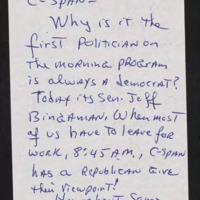 C-SPAN-
Why is it the
first Politician on
the morning program
is always a democrat?
Today its Sen. Jeff
Bingaman. When most
of us have to leave for
work, 8:45 A.M., C-SPAN
has a Republican give
their viewpoint!
How about some